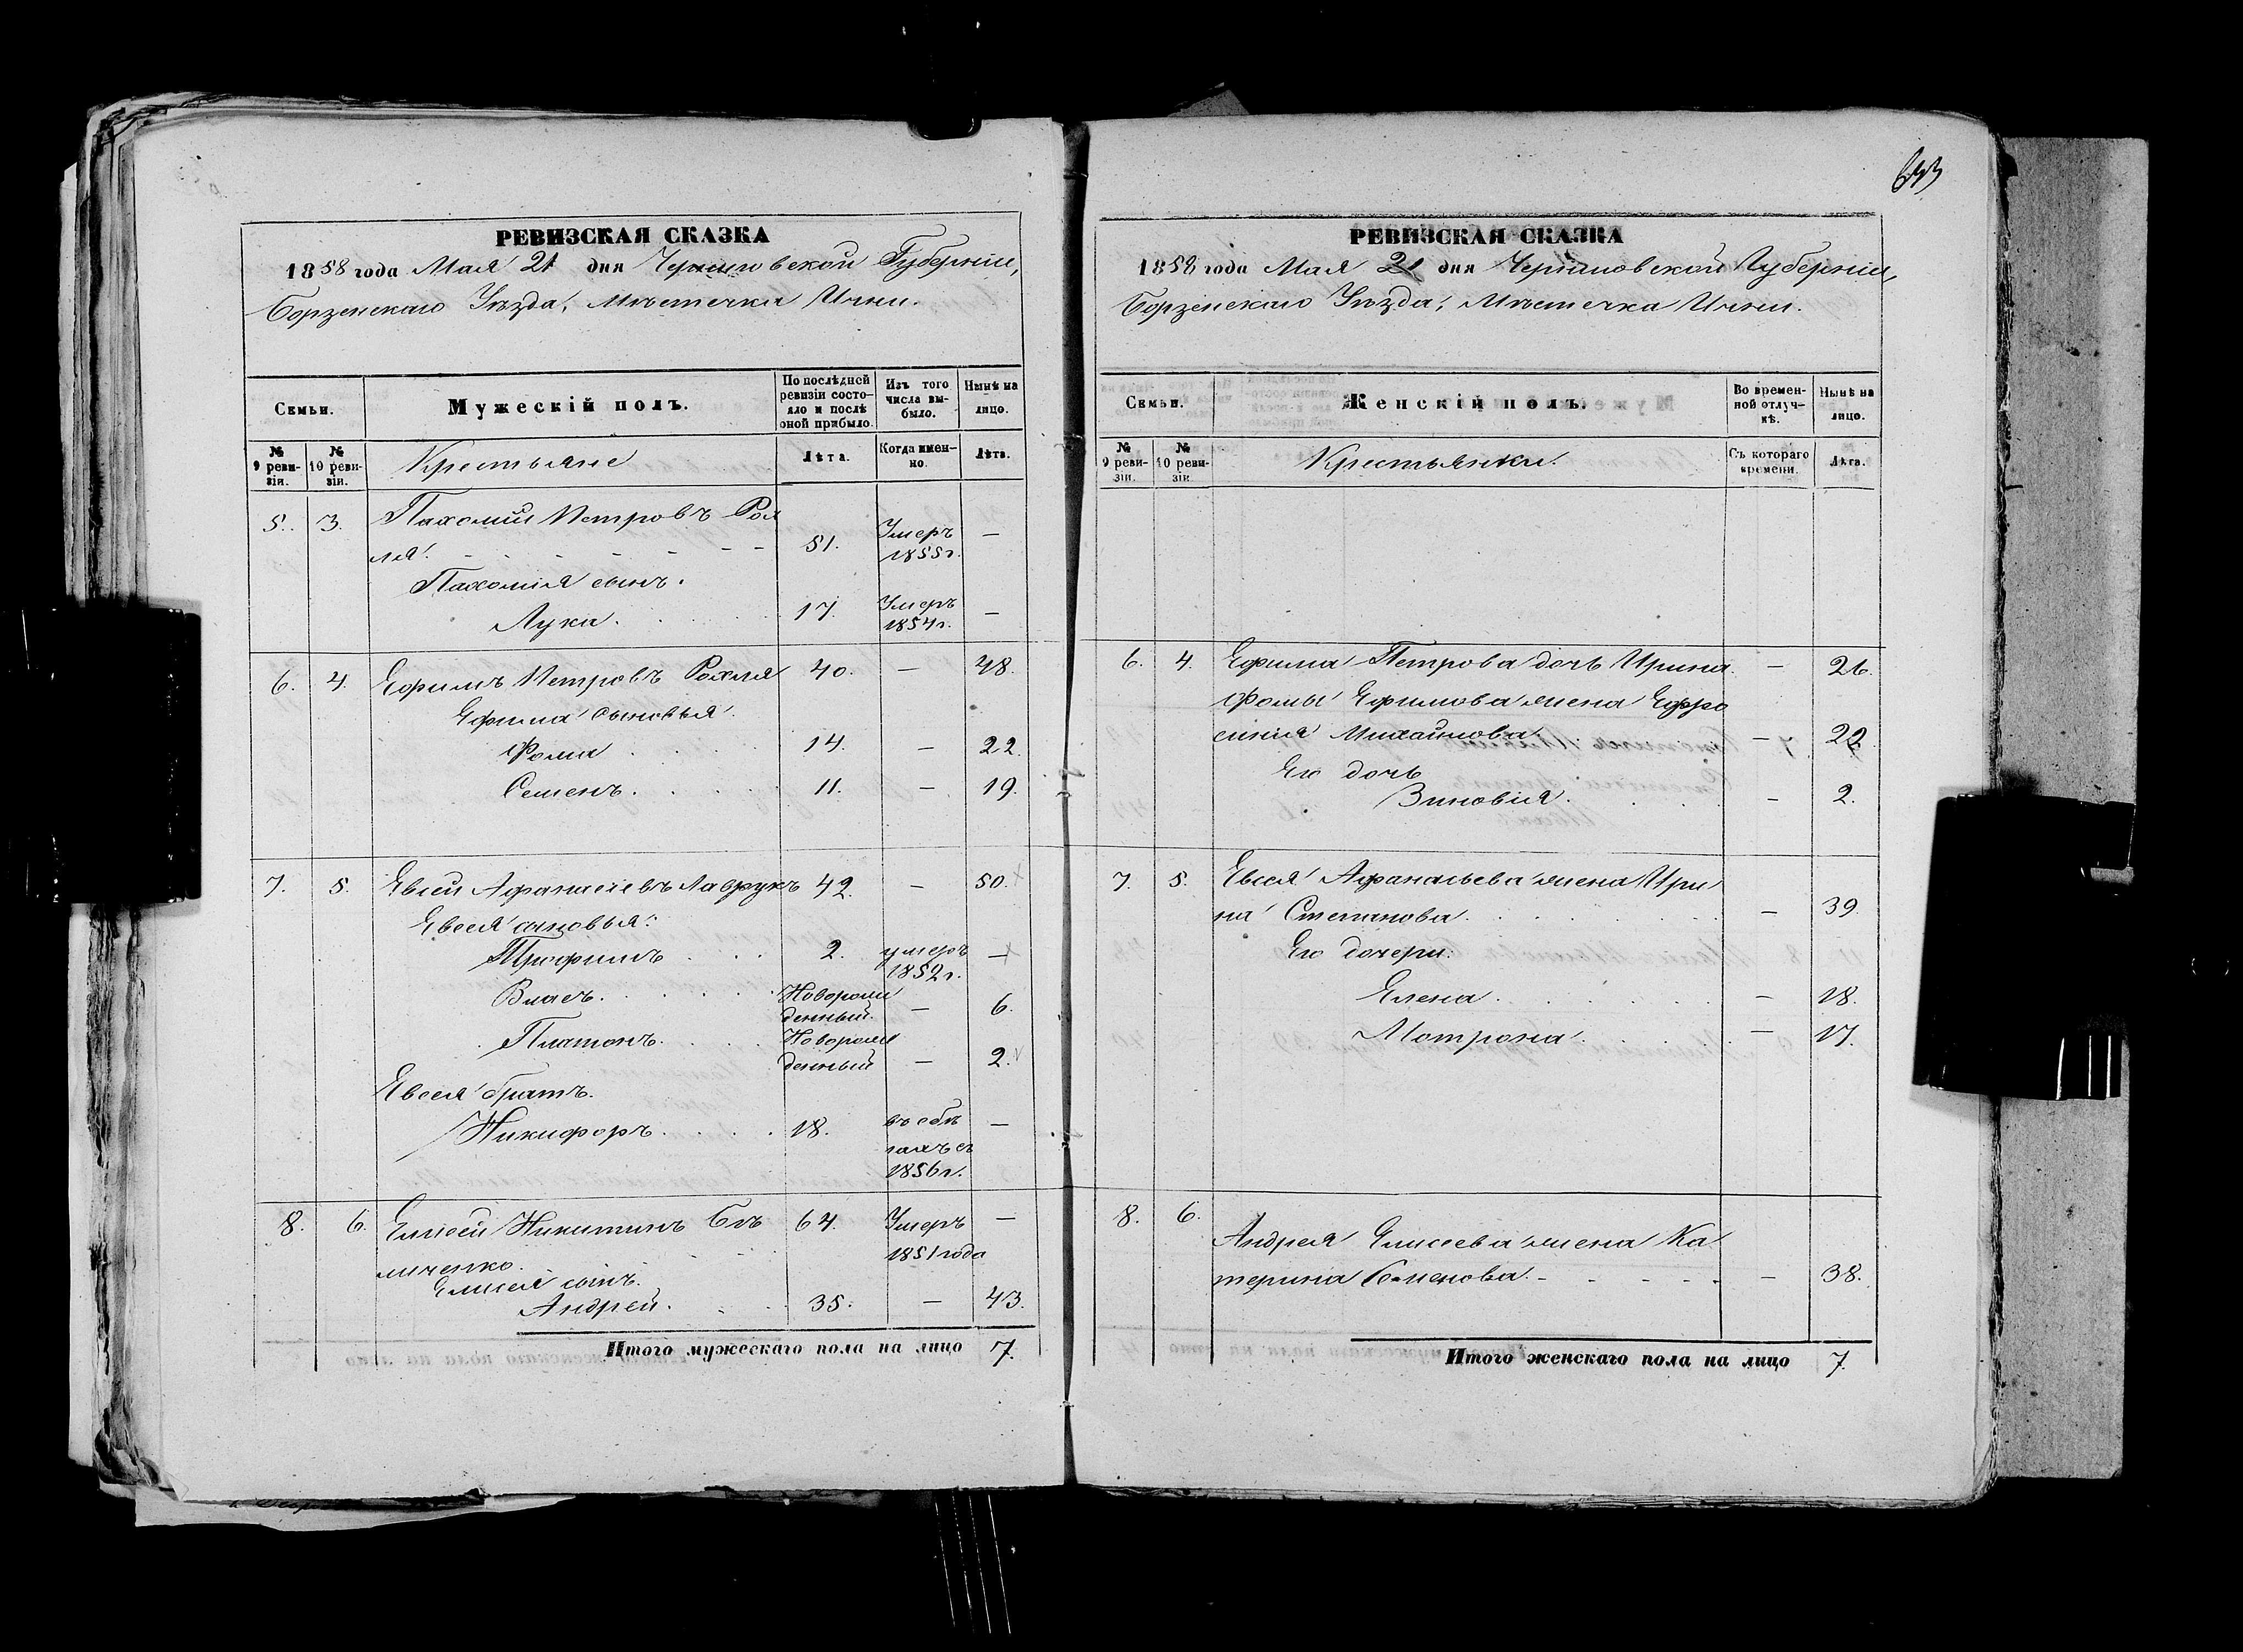 633
РЕВИЗСКАЯ СКАЗКА
1858 года Мая 21 дня Черниговской Губерніи,
Борзенскаго Уѣзда, Мѣстечка Ични.
Семьи.
Мужескій полъ.
По послѣдней ревизіи состояло и послѣ оной прибыло.
Изъ того числа выбыло.
Нынѣ на лицо.
№ 9 ревизіи.
№ 10 ревизіи.
Крестьяне
Лѣта.
Когда именно.
Лѣта.
5. 3. Пахомій Петровъ Рох
ля 51. Умеръ 1855г. —
Пахомія сынъ.
Лука 17. Умеръ 1854г. —
6. 4. Ефимъ Петровъ Рохля 40. — 48.
Ефима сыновья
Фома 14. — 22.
Семенъ 11. — 19.
7. 5. Евсей Афанасіевъ Лаврукъ 42. — 50.
Евсея сыновья:
Трофимъ 2. умеръ 1852г. —
Власъ Новорожденный. — 6.
Платонъ Новорожденный — 2.
Евсея братъ.
Никифоръ 18. въ бѣгахъ съ 1856г. —
8. 6. Елисей Никитинъ Бѣ 64. Умеръ 1851 года —
личенко.
Елисея сынъ.
Андрей 35. — 43.
Итого мужескаго пола на лицо 7.
РЕВИЗСКАЯ СКАЗКА
1858 года Мая 21 дня Черниговской Губерніи,
Борзенскаго Уѣзда, Мѣстечка Ични.
Семьи.
Женскій полъ.
Во временной отлучкѣ.
Нынѣ на лицо.
№ 9 ревизіи.
№ 10 ревизіи.
Крестьянки.
Съ котораго времени.
Лѣта.
6. 4. Ефима Петрова дочь Ирина — 26.
Фомы Ефимова жена Ефро
синія Михайлова — 22
Его дочь
Зиновія — 2.
7. 5. Евсея Афанасьева жена Ири
на Степанова — 39
Его дочери:
Елена — 18.
Мотрона — 17.
8. 6. Андрея Елисеева жена Ка
терина — 38.
Итого женскаго пола на лицо 7.